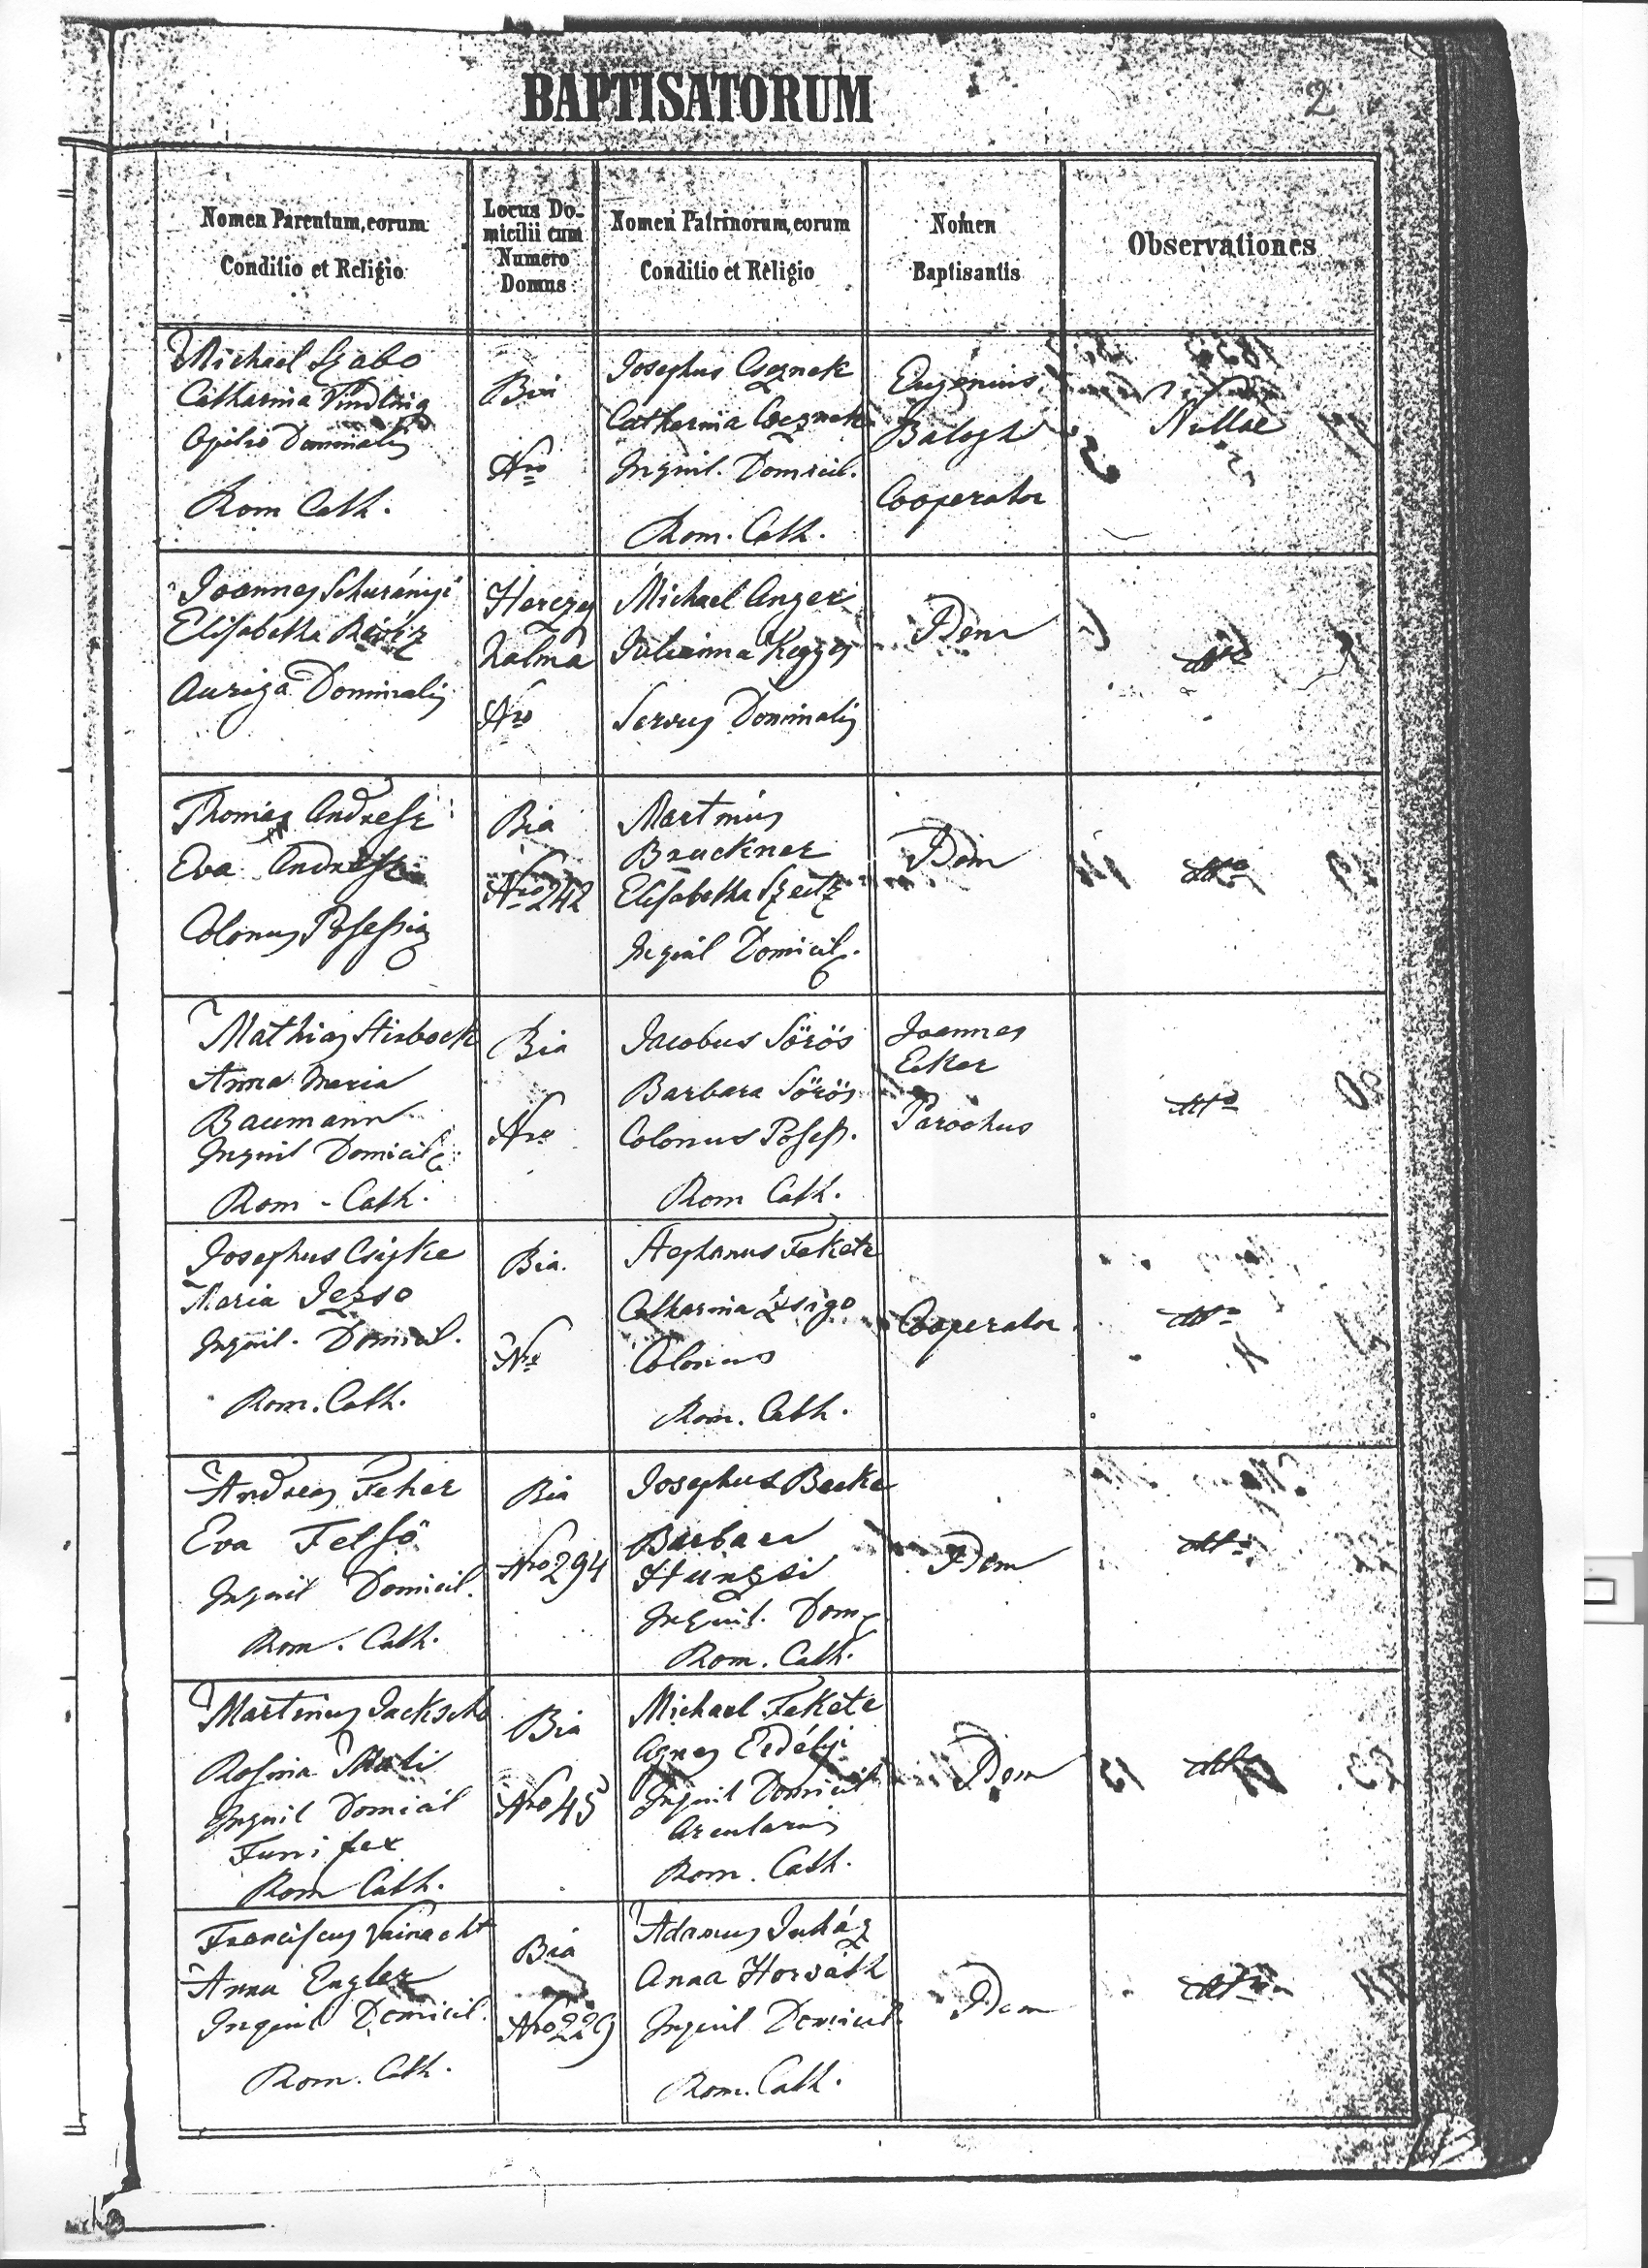 BAPTISATORUM
2
Nomen Parentum, eorum
Conditio et Religio
Locus Do-
micilii cum
Numero
Domus
Nomen Patrinorum, eorum
Conditio et Religio
Nomen
Baptisantis
Observationes
Michael Szabo
Catharina Vindling
Opilio Dominalis
Rom Cath.
Bia
Nro
Josephus Cseznek
Catharina Cseznek
Inquil. Domicil.
Rom. Cath.
Eugenius
Balogh
Cooperator
Nullae
Joannes Schurányi
Elisabetha
Auriga Dominalis
Herczeg
halma
Nro
Michael Anger
Julianna Kegyes
Servus Dominalis
Idem
dtto
Thomas Andresz
Eva Andresz
Colonus Possessio
Bia
Nro 242
Martinus
Bruckner
Elisabetha Szeitz
Inquil Domicil.
Idem
dtto
Mathias Stisbock
Anna Maria
Baumann
Inquil Domicil
Rom - Cath.
Bia
Nro
Jacobus Sörös
Barbara Sörös
Colonus Possess.
Rom Cath.
Joannes
Eker
Parochus
dtto
Josephus Csipke
Maria Jezso
Inquil. Domicil.
Rom. Cath.
Bia.
Nro
Stephanus Fekete
Catharina Zsigo
Colonus
Rom. Cath.
Cooperator
dtto
Andreas Feher
Eva Felsö
Inquil Domicil.
Rom. Cath.
Bia
Nro 294
Josephus Becke
Barbara
Inquil. Dom
Rom. Cath.
Idem
dtto
Martinus Jacksch
Rosina
Inquil Domicil
Funifex
Rom Cath.
Bia
Nro 45
Michael Fekete
Agnes Erdélyi
Inquil Domicil
Arcularius
Rom. Cath.
Idem
dtto
Franciscus Vainacht
Anna Engler
Inquil Domicil.
Rom. Cath.
Bia
Nro 229
Adamus Juház
Anna Horváth
Inquil Domicil.
Rom. Cath.
Idem
dtto